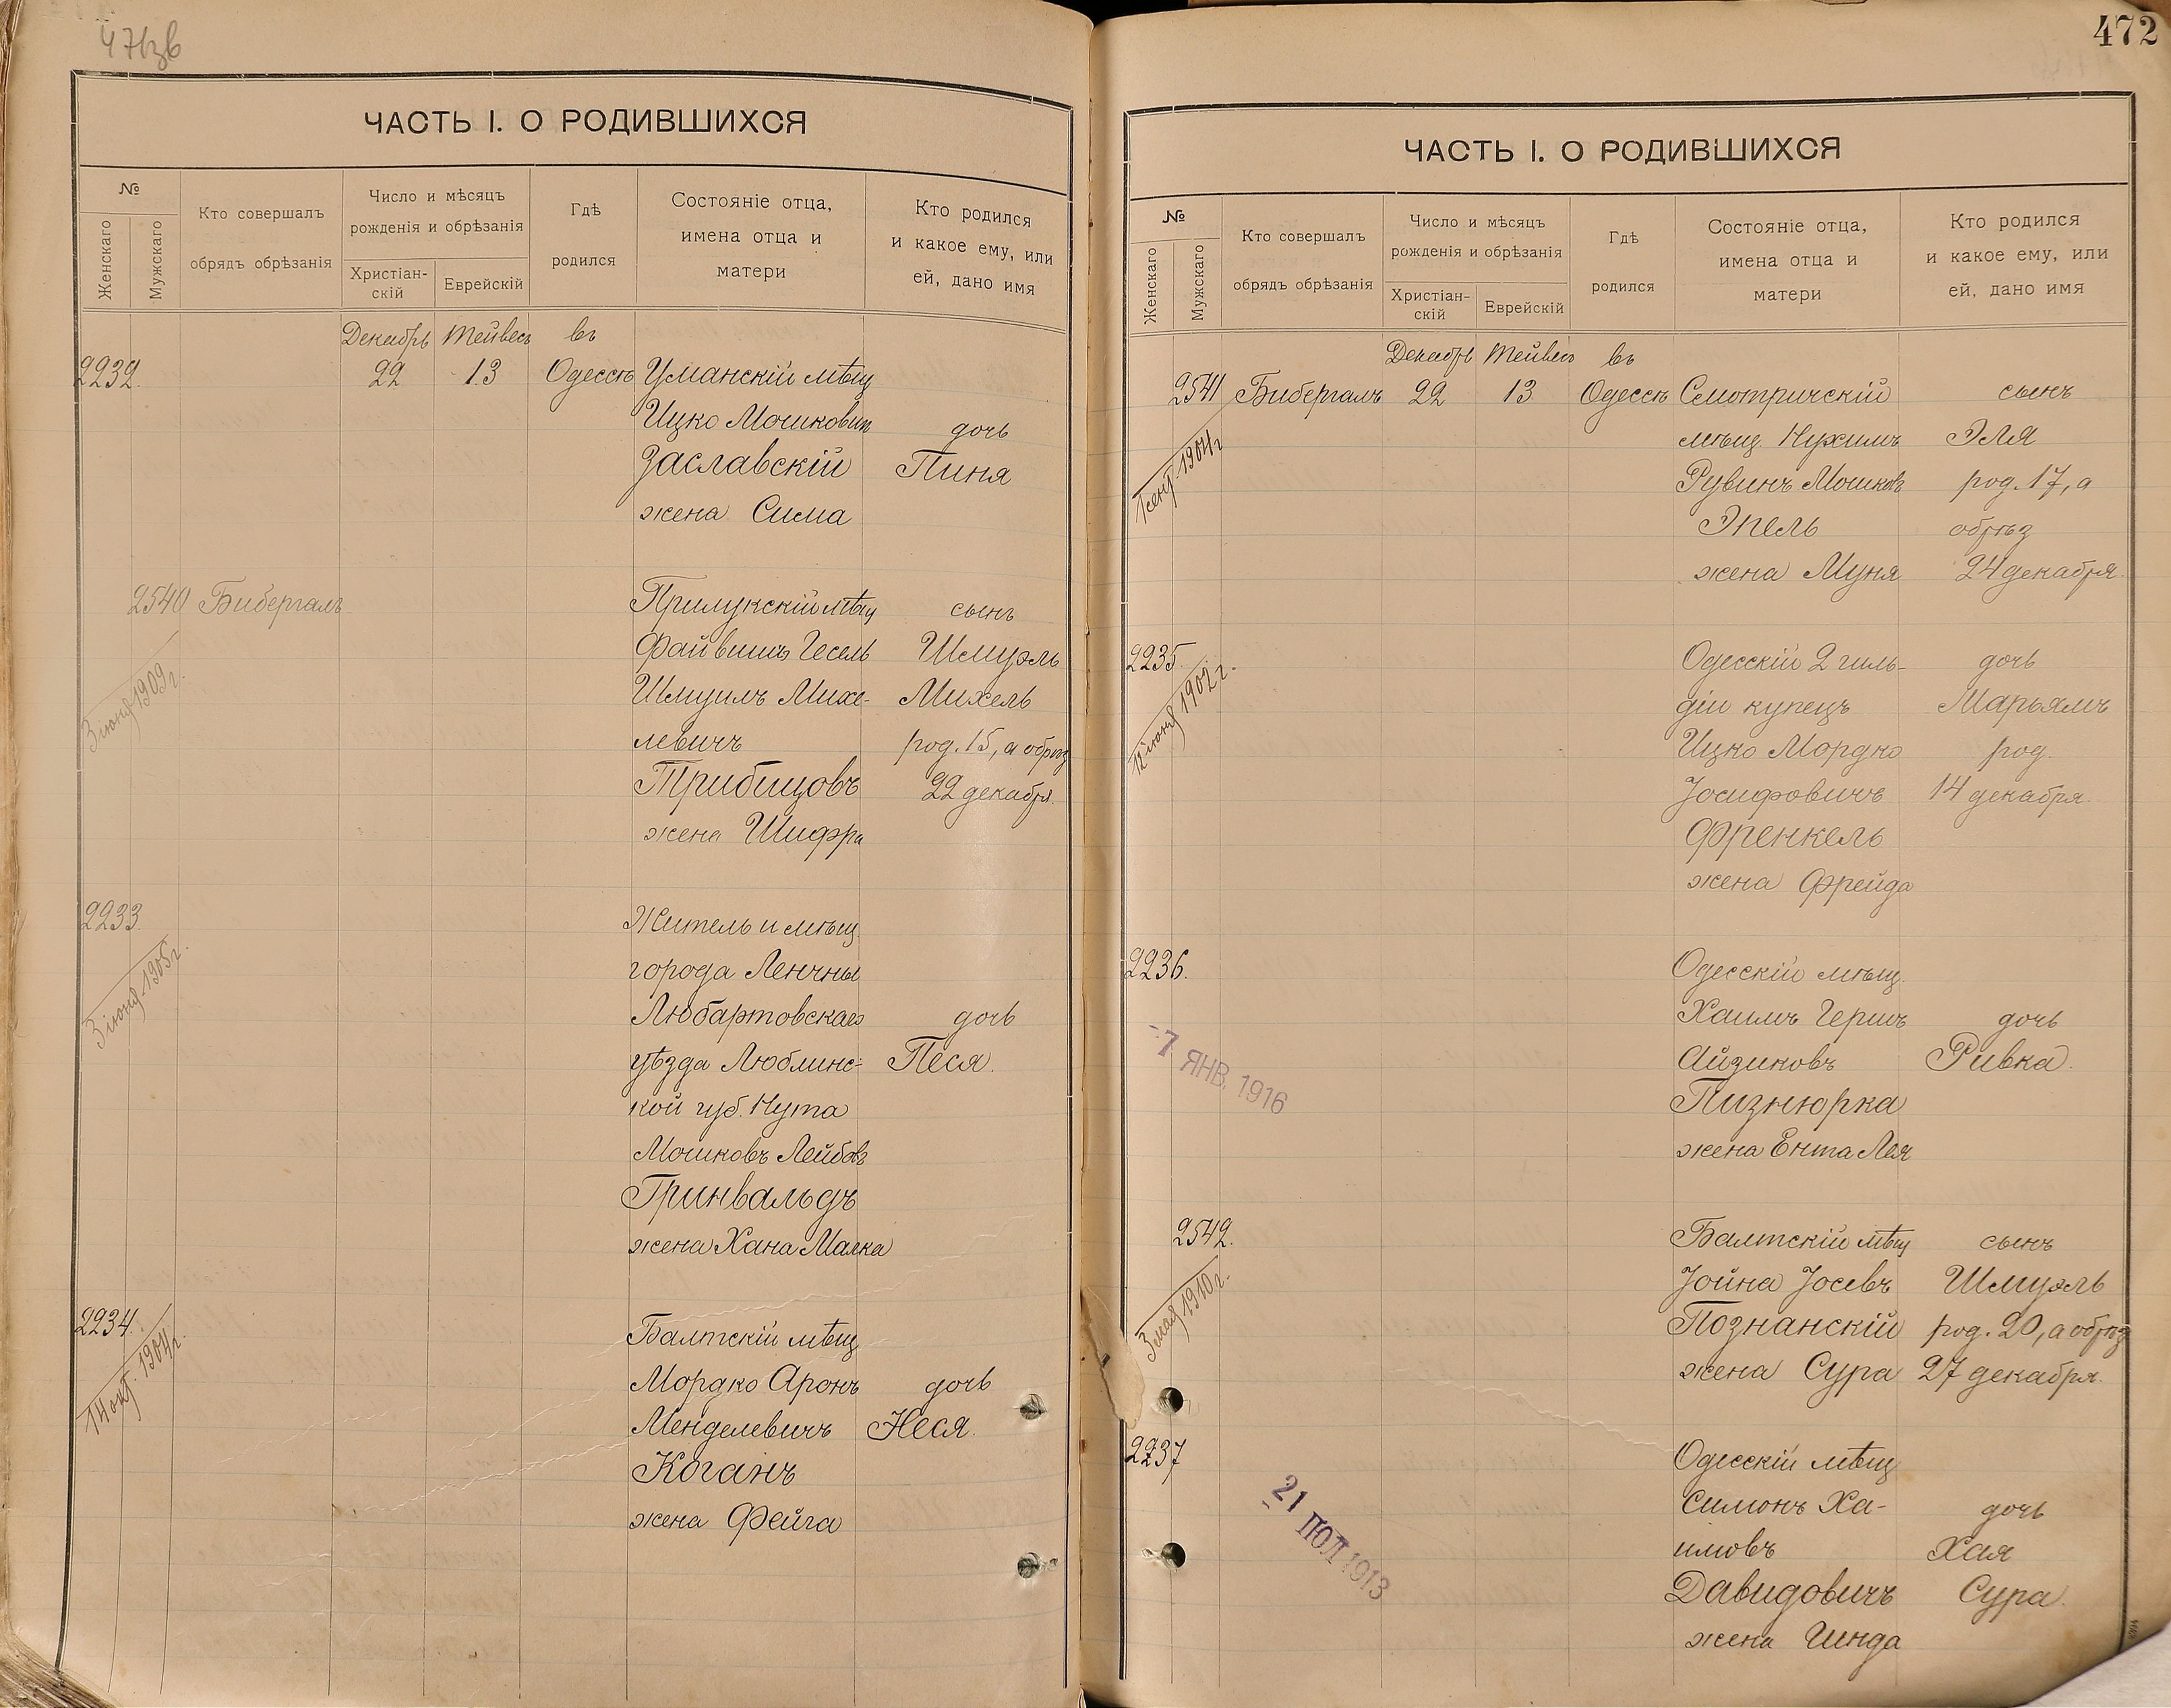 471 об
ЧАСТЬ I. О РОДИВШИХСЯ
№
Женскаго
Мужскаго
Кто совершалъ
обрядъ обрѣзанія
Число и мѣсяцъ
рожденія и обрѣзанія
Христіан-
скій
Еврейскій
Гдѣ
родился
Состояніе отца,
имена отца и
матери
Кто родился
и какое ему, или
ей, дано имя
Декабрь Тейвесъ въ
2232. 22 13 Одессѣ Уманскій мѣщ
Ицко Мошковичъ дочь
Заславскій Пиня
жена Сима
2540 Бибергалъ Прилукскій мѣщ сынъ
3 іюня 1909 г.
Файвишъ Гесель Шмуэль
Шмуилъ Михе- Михель
левичъ род. 15, а обрѣз
Трибицовъ 22 декабря.
жена Шифра
2233. Житель и мѣщ.
3 іюня 1905 г.
города Ленчны
Любартовскаго дочь
уѣзда Люблинс- Песя.
кой губ. Нута
Мошковъ Лейбовъ
Гринвальдъ
жена Хана Малка
2234. Балтскій мѣщ
14 окт. 1904 г.
Мордко Аронъ дочь
Менделевичъ Неся.
Коганъ
жена Фейга
472
ЧАСТЬ I. О РОДИВШИХСЯ
№
Женскаго
Мужскаго
Кто совершалъ
обрядъ обрѣзанія
Число и мѣсяцъ
рожденія и обрѣзанія
Христіан-
скій
Еврейскій
Гдѣ
родился
Состояніе отца,
имена отца и
матери
Кто родился
и какое ему, или
ей, дано имя
Декабрь Тейвесъ въ
2541 Бибергалъ 22 13 Одессѣ Смотричскій сынъ
1 сент. 1904 г
мѣщ. Нухимъ Эля
Рувинъ Мошковъ род. 17, а
Эпель обрѣз
жена Муня 24 декабря.
2235. Одесскій 2 гиль- дочь
12 іюня 1902 г.
діи купецъ Марьямъ
Ицко Мордко род.
Іосифовичъ 14 декабря.
Френкель
жена Фрейда
2236. Одесскій мѣщ.
Хаимъ Гершъ дочь
-7 ЯНВ. 1916
Айзиковъ Ривка.
Пизнюрка
жена Ента Лея
2542. Балтскій мѣщ сынъ
3 мая 1910 г.
Іойна Іосевъ Шмуэль
Познанскій род. 20, а обрѣз
жена Сура 27 декабря.
2237 Одесскій мѣщ
21 ІЮЛ 1913
Симонъ Ха- дочь
имовъ Хая
Давидовичъ Сура.
жена Гинда